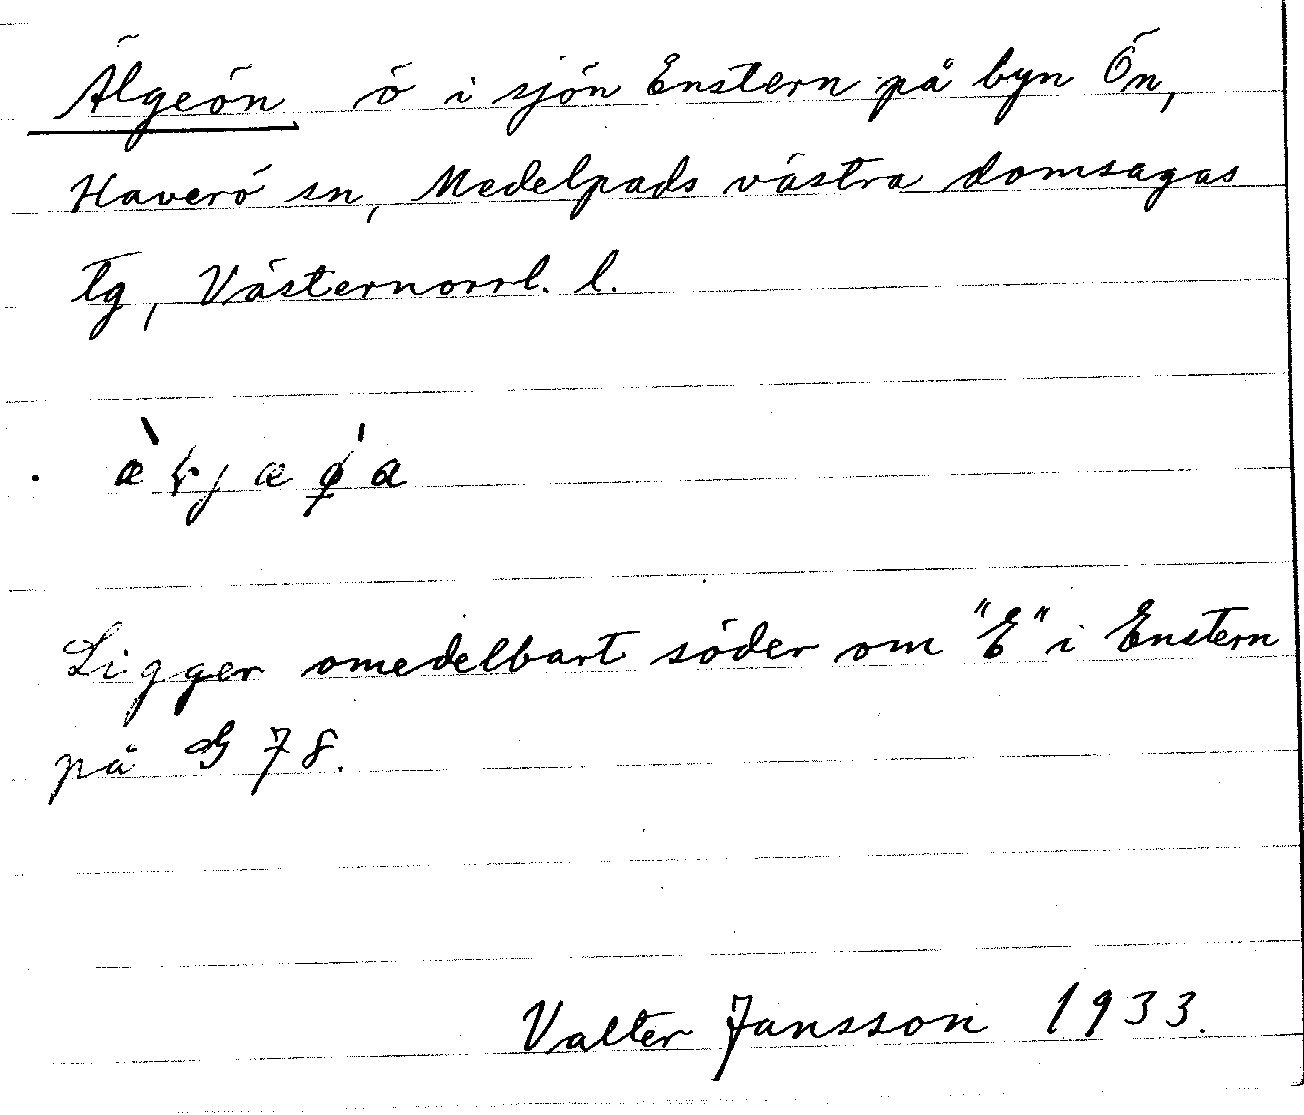 Älgeön ö i sjön Enstern på byn Ön,
Haverö sn, Medelpads västra domsagas
tg, Västernorrl. l.
Ligger omedelbart söder om "E" i Enstern
på G 78.
Valter Jansson 1933.